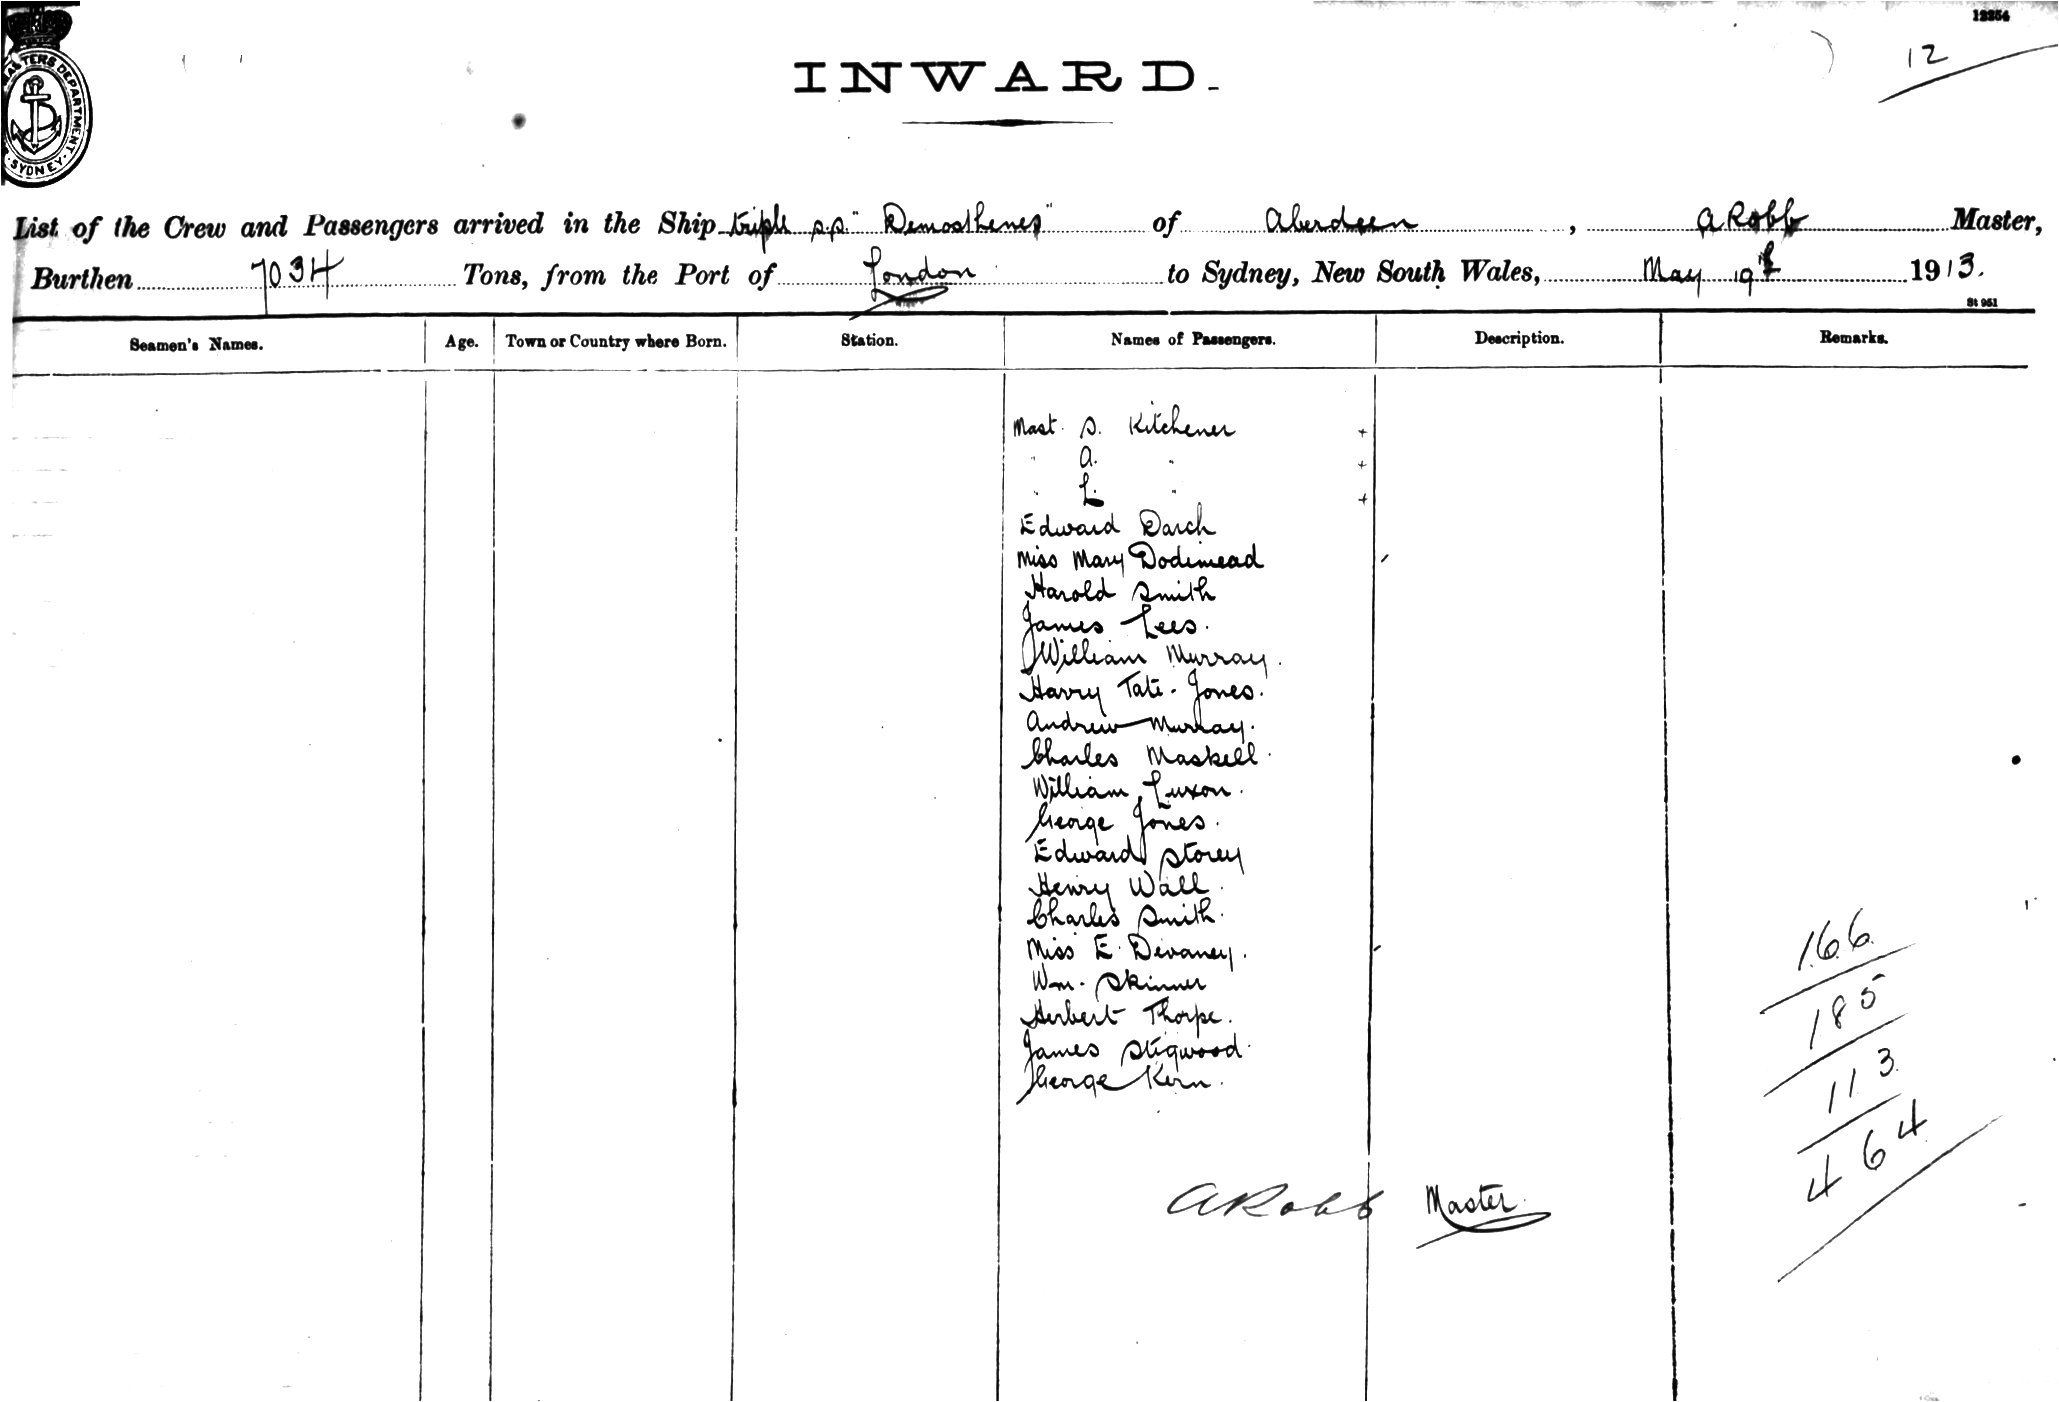 12254
12
MASTERS DEPARTMENT
SYDNEY
INWARD.
List of the Crew and Passengers arrived in the Ship triple s.s. "Demosthenes" of Aberdeen, A Robb Master,
Burthen 7034 Tons, from the Port of London to Sydney, New South Wales, May 19th 1913.
St 951
Seamen's Names. Age. Town or Country where Born. Station. Names of Passengers. Description. Remarks.
Mast. S. Kitchener +
" A. " +
" L. " +
Edward Darch
Miss Mary Dodimead
Harold Smith
James Lees.
William Murray.
Harry Tate-Jones.
Andrew Murray.
Charles Maskell.
William Luxon.
George Jones.
Edward Storey
Henry Wall.
Charles Smith.
Miss E. Devaney.
Wm. Skinner
Herbert Thorpe.
James Stigwood.
George Kern.
166
185
113
464
A Robb Master.